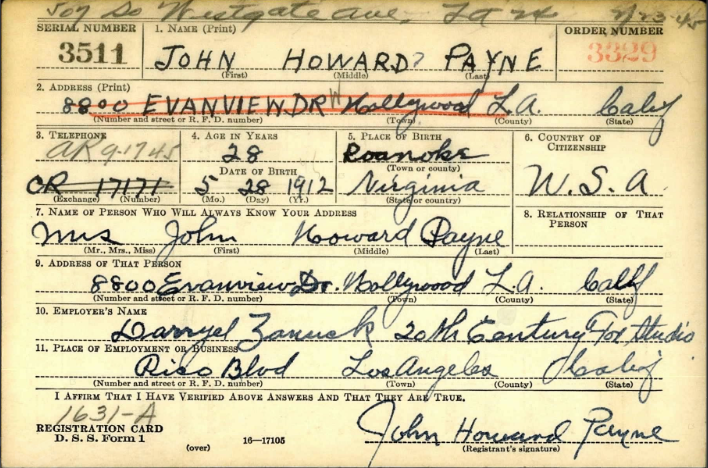 507 So Westgate Ave. LA 24 9-23-45
SERIAL NUMBER 1. NAME (Print) ORDER NUMBER
3511 JOHN HOWARD? PAYNE 3329
(First) (Middle) (Last)
2. ADDRESS (Print)
8800 EVANVIEW DR W Hollywood L.A. Calif
(Number and street or R. F. D. number) (Town) (County) (State)
3. TELEPHONE 4. AGE IN YEARS 5. PLACE OF BIRTH 6. COUNTRY OF CITIZENSHIP
AR 9-1745 28 Roanoke
DATE OF BIRTH (Town or county)
CR 17171 5 28 1912 Virginia U.S.A.
(Exchange) (Number) (Mo.) (Day) (Yr.) (State or country)
7. NAME OF PERSON WHO WILL ALWAYS KNOW YOUR ADDRESS 8. RELATIONSHIP OF THAT PERSON
Mrs John Howard Payne
(Mr., Mrs., Miss) (First) (Middle) (Last)
9. ADDRESS OF THAT PERSON
8800 Evanview Dr. Hollywood L.A. Calif
(Number and street or R. F. D. number) (Town) (County) (State)
10. EMPLOYER'S NAME
Darryel Zanuck 20th Century Fox Studio
11. PLACE OF EMPLOYMENT OR BUSINESS
Pico Blvd Los Angeles Calif
(Number and street or R. F. D. number) (Town) (County) (State)
I AFFIRM THAT I HAVE VERIFIED ABOVE ANSWERS AND THAT THEY ARE TRUE.
1631-A
REGISTRATION CARD John Howard Payne
D. S. S. Form 1 (over) 16—17105 (Registrant's signature)